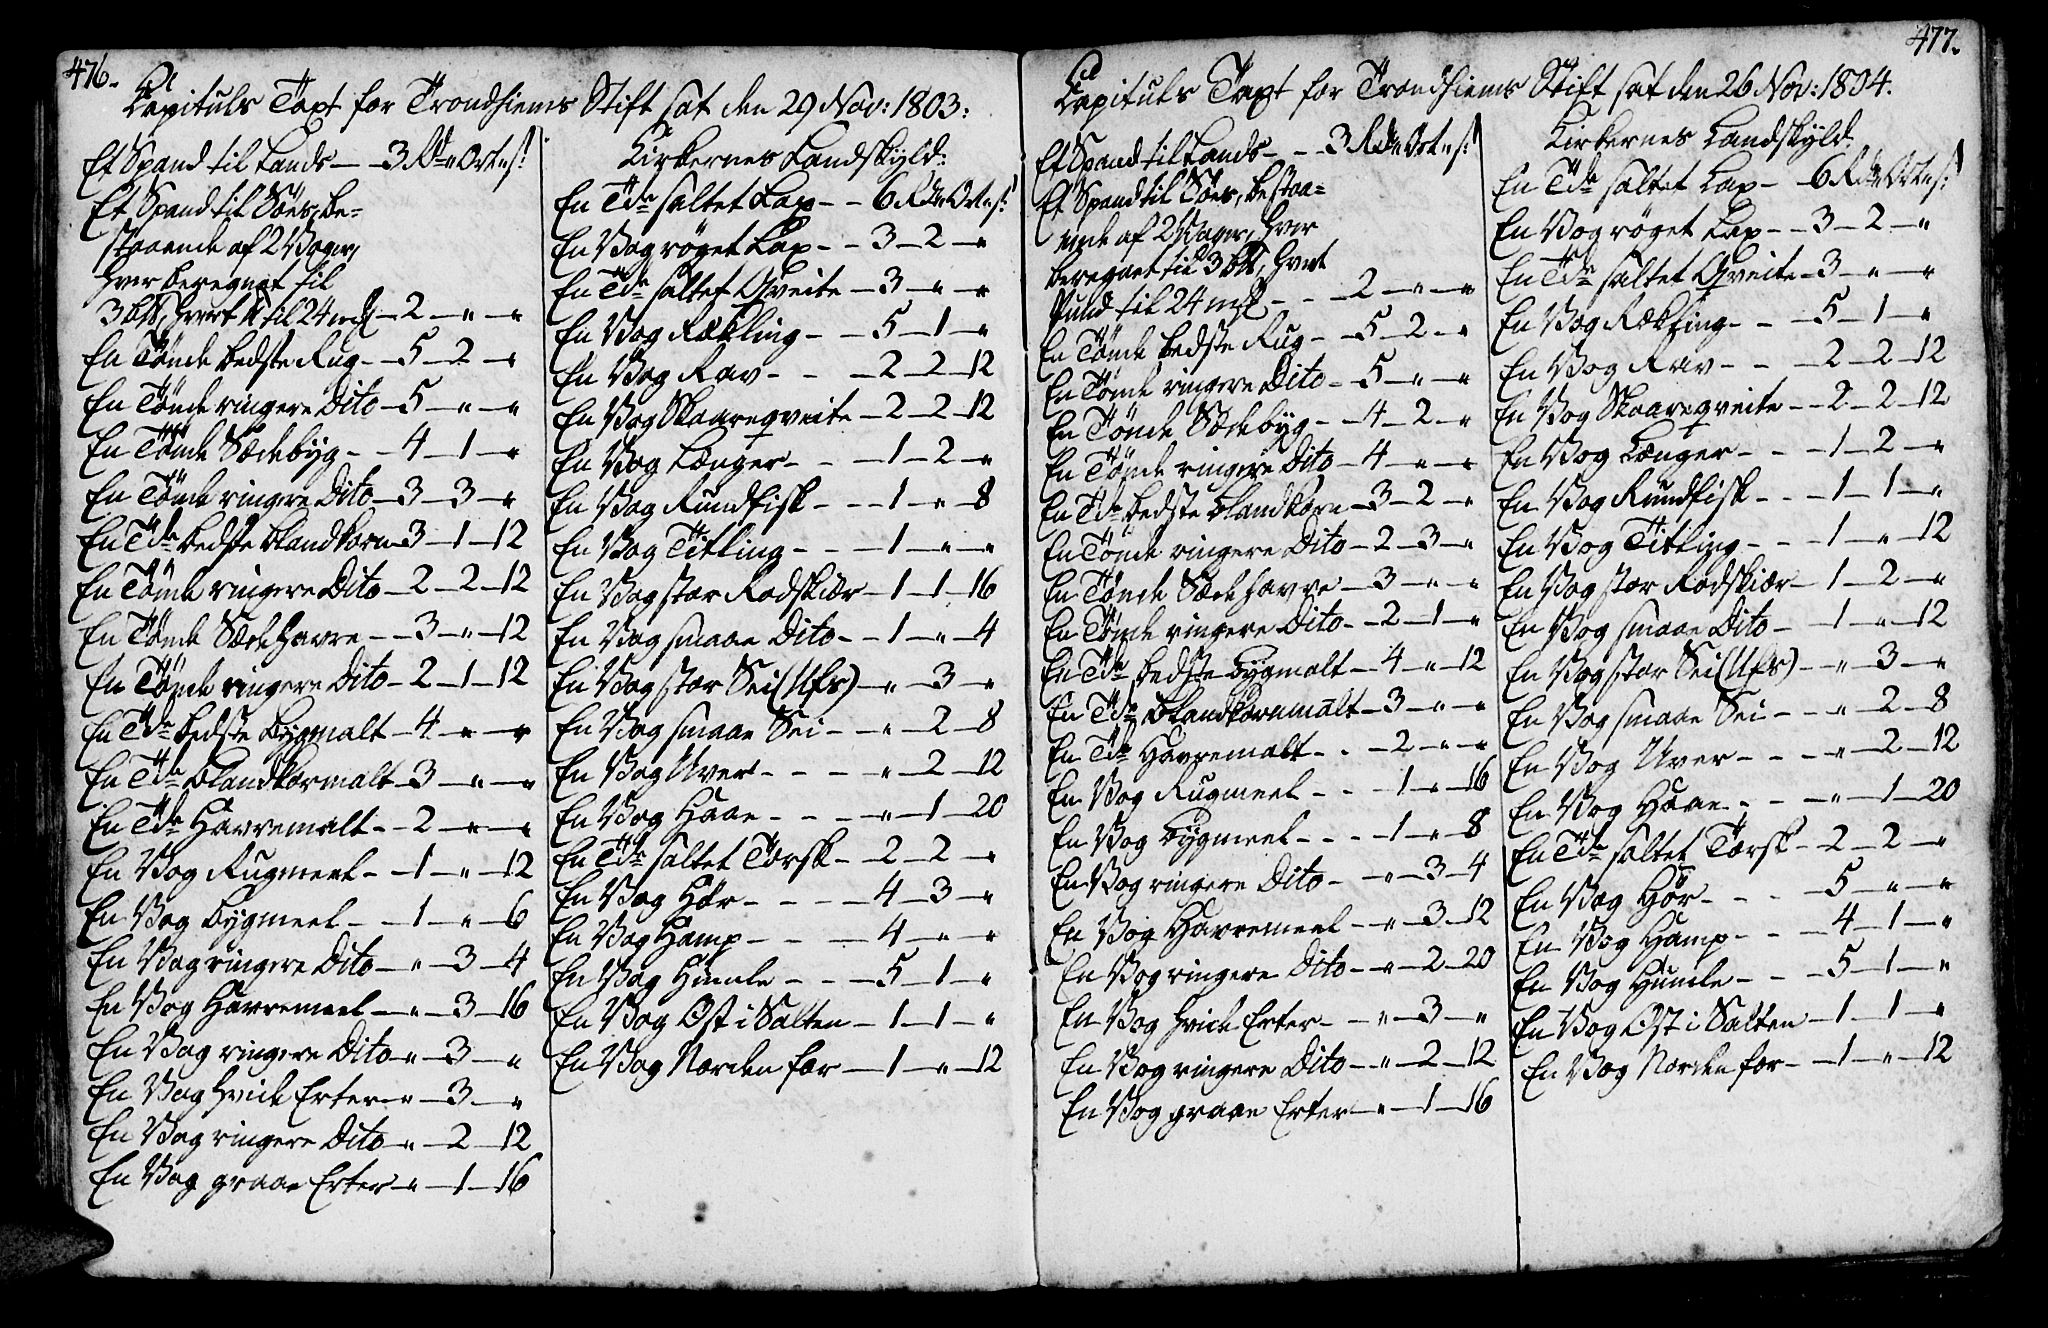 476.
Capituls Taxt for Trondhiems Stift sat den 29 Nov: 1803:
Et Spand til Lands — 3 Rd " Ort " s:
Et Spand til Söes, be=
staaende af 2 Vager,
hver beregnet til
3 b℔, hvert ℔ til 24 mk — 2 — " — "
En Tönde bedste Rug — 5 — 2 — "
En Tönde ringere Dito — 5 — " — "
En Tönde Sædebyg — 4 — 1 — "
En Tönde ringere Dito — 3 — 3 — "
En Tde bedste blandkorn — 3 — 1 — 12
En Tönde ringere Dito — 2 — 2 — 12
En Tönde Sædehavre — 3 — " — 12
En Tönde ringere Dito — 2 — 1 — 12
En Tde bedste bygmalt — 4 — " — "
En Tde blandkormalt — 3 — " — "
En Tde Havremalt — 2 — " — "
En Vog Rugmeel — 1 — " — 12
En Vog bygmeel — 1 — " — 6
En Vog ringere Dito — " — 3 — 4
En Vog Havremeel — " — 3 — 16
En Vog ringere Dito — " — 3 — "
En Vog hvide Erter — " — 3 — "
En Vog ringere Dito — " — 2 — 12
En Vog graae Erter — " — 1 — 16
Kirkernes Landskyld:
En Tde saltet Lax — 6 Rd " Ort " s:
En Vog röget Lax — 3 — 2 — "
En Tde saltet Qveite — 3 — " — "
En Vog Rækling — 5 — 1 — "
En Vog Rav — 2 — 2 — 12
En Vog Skaareqveite — 2 — 2 — 12
En Vog Længer — 1 — 2 — "
En Vog Rundfisk — 1 — " — 8
En Vog Titling — 1 — " — "
En Vog stor Rodskiær — 1 — 1 — 16
En Vog smaae Dito — 1 — " — 4
En Vog stor Sei (Ufs) — " — 3 — "
En Vog smaae Sei — " — 2 — 8
En Vog Uver — " — 2 — 12
En Vog Haae — " — 1 — 20
En Tde saltet Torsk — 2 — 2 — "
En Vog Hör — 4 — 3 — "
En Vog Hamp — 4 — " — "
En Vog Humle — 5 — 1 — "
En Vog Ost i Salten — 1 — 1 — "
En Vog Norden for — 1 — " — 12
477.
Capituls Taxt for Trondhiems Stift sat den 26 Nov: 1804.
Et Spand til Lands — 3 Rd " Ort " s:
Et Spand til Söes, bestaa=
ende af 2 Vager, hver
beregnet til 3 b℔, hvert
Pund til 24 mk — 2 — " — "
En Tönde bedste Rug — 5 — 2 — "
En Tönde ringere Dito — 5 — " — "
En Tönde Sædebyg — 4 — 2 — "
En Tönde ringere Dito — 4 — " — "
En Tde bedste blandkorn — 3 — 2 — "
En Tönde ringere Dito — 2 — 3 — "
En Tönde Sædehavre — 3 — " — "
En Tönde ringere Dito — 2 — 1 — "
En Tde bedste bygmalt — 4 — " — 12
En Tde blandkornmalt — 3 — " — "
En Tde Havremalt — 2 — " — "
En Vog Rugmeel — 1 — " — 16
En Vog bygmeel — 1 — " — 8
En Vog ringere Dito — " — 3 — 4
En Vog Havremeel — " — 3 — 12
En Vog ringere Dito — " — 2 — 20
En Vog hvide Erter — " — 3 — "
En Vog ringere Dito — " — 2 — 12
En Vog graae Erter — " — 1 — 16
Kirkernes Landskyld:
En Tde saltet Lax — 6 Rd " Ort " s:
En Vog röget Lax — 3 — 2 — "
En Tde saltet Qveite — 3 — " — "
En Vog Rækling — 5 — 1 — "
En Vog Rav — 2 — 2 — 12
En Vog Skaareqveite — 2 — 2 — 12
En Vog Længer — 1 — 2 — "
En Vog Rundfisk — 1 — 1 — "
En Vog Titling — 1 — " — 12
En Vog stor Rodskiær — 1 — 2 — "
En Vog smaae Dito — 1 — " — 12
En Vog stor Sei (Ufs) — " — 3 — "
En Vog smaae Sei — " — 2 — 8
En Vog Uver — " — 2 — 12
En Vog Haae — " — 1 — 20
En Tde saltet Torsk — 2 — 2 — "
En Vog Hör — 5 — " — "
En Vog Hamp — 4 — 1 — "
En Vog Humle — 5 — 1 — "
En Vog Ost i Salten — 1 — 1 — "
En Vog Norden for — 1 — " — 12